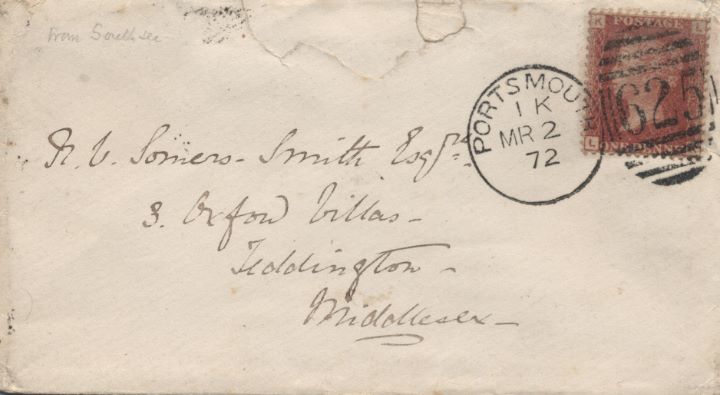 From Southsea
K POSTAGE L
625
L ONE PENNY
PORTSMOUTH
1 K
MR 2
72
R. V. Somers-Smith Esqre
3. Oxford Villas-
Teddington-
Middlesex-